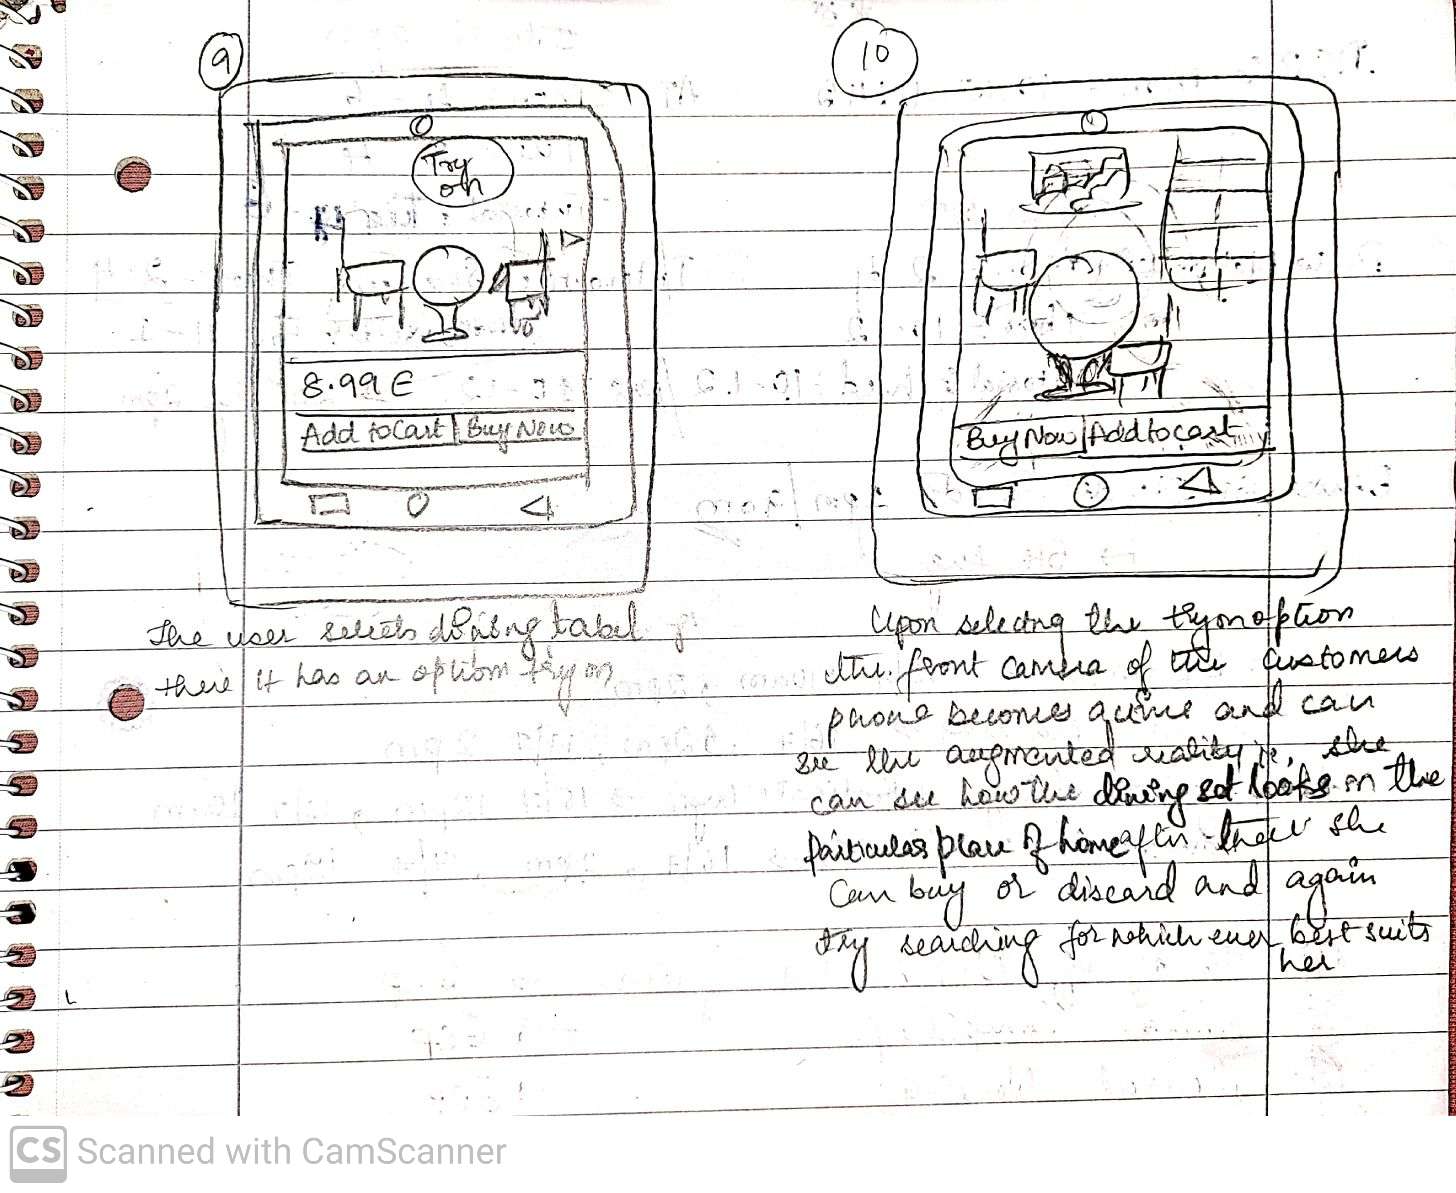 9
Try
on
8.99 E
Add to Cart | Buy Now
The user selects dining tabel
there it has an option try on
10
Buy Now | Add to cart
Upon selecting the try on option
the front camera of the customers
phone becomes active and can
see the augmented reality ie, she
can see how the dining set looks in the
particular place of home after that she
Can buy or discard and again
try searching for which ever best suits
her
CS Scanned with CamScanner